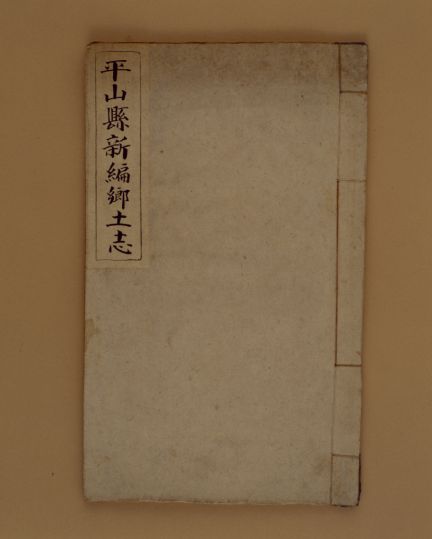 平山縣新編鄉土志